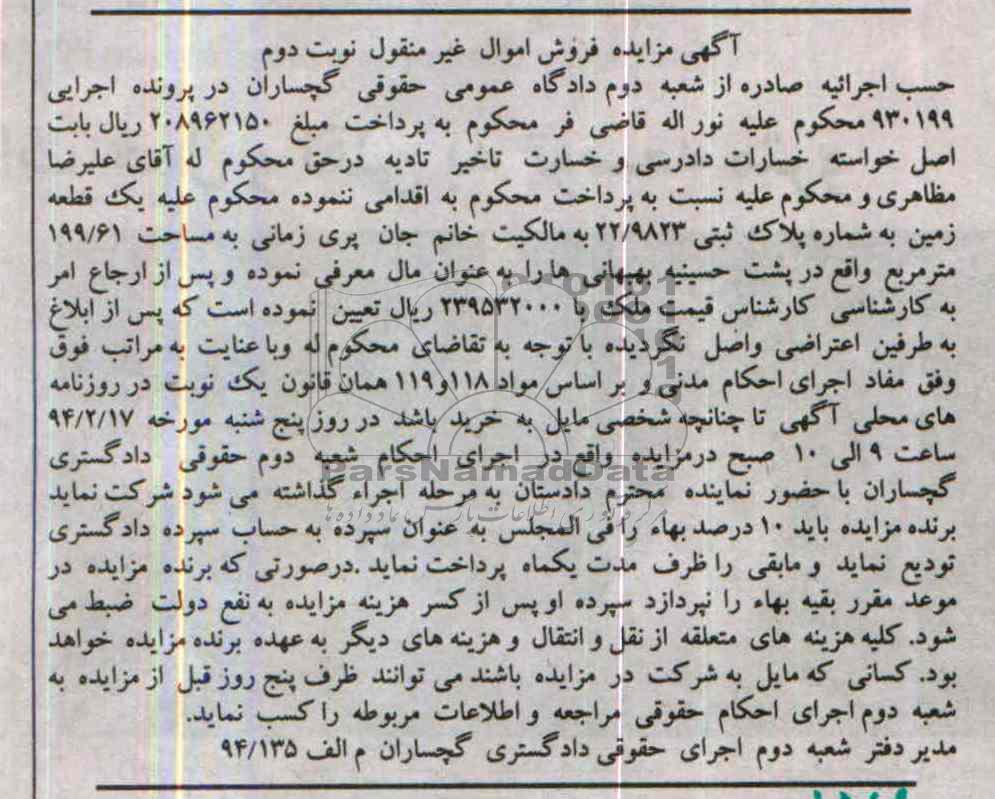 آگهی مزایده فروش اموال غیر منقول نوبت دوم
حسب اجرائیه صادره از شعبه دوم دادگاه عمومی حقوقی گچساران در پرونده اجرایی
۹۳۰۱۹۹ محکوم علیه نور اله قاضی فر محکوم به پرداخت مبلغ ۲۰۸۹۶۲۱۵۰ ریال بابت
اصل خواسته خسارات دادرسی و خسارت تاخیر تادیه درحق محکوم له آقای علیرضا
مظاهری و محکوم علیه نسبت به پرداخت محکوم به اقدامی ننموده محکوم علیه یک قطعه
زمین به شماره پلاک ثبتی ۲۲/۹۸۲۳ به مالکیت خانم جان پری زمانی به مساحت ۱۹۹/۶۱
مترمربع واقع در پشت حسینیه بهبهانی ها را به عنوان مال معرفی نموده و پس از ارجاع امر
به کارشناسی کارشناس قیمت ملک با ۲۳۹۵۳۲۰۰۰ ریال تعیین نموده است که پس از ابلاغ
به طرفین اعتراضی واصل نگردیده با توجه به تقاضای محکوم له وبا عنایت به مراتب فوق
وفق مفاد اجرای احکام مدنی و بر اساس مواد ۱۱۸و۱۱۹ همان قانون یک نوبت در روزنامه
های محلی آگهی تا چنانچه شخصی مایل به خرید باشد در روز پنج شنبه مورخه ۹۴/۲/۱۷
ساعت ۹ الی ۱۰ صبح درمزایده واقع در اجرای احکام شعبه دوم حقوقی دادگستری
گچساران با حضور نماینده محترم دادستان به مرحله اجراء گذاشته می شود شرکت نماید
برنده مزایده باید ۱۰ درصد بهاء را فی المجلس به عنوان سپرده به حساب سپرده دادگستری
تودیع نماید و مابقی را ظرف مدت یکماه پرداخت نماید .درصورتی که برنده مزایده در
موعد مقرر بقیه بهاء را نپردازد سپرده او پس از کسر هزینه مزایده به نفع دولت ضبط می
شود. کلیه هزینه های متعلقه از نقل و انتقال و هزینه های دیگر به عهده برنده مزایده خواهد
بود. کسانی که مایل به شرکت در مزایده باشند می توانند ظرف پنج روز قبل از مزایده به
شعبه دوم اجرای احکام حقوقی مراجعه و اطلاعات مربوطه را کسب نماید.
مدیر دفتر شعبه دوم اجرای حقوقی دادگستری گچساران م الف ۹۴/۱۳۵
ParsNamadData